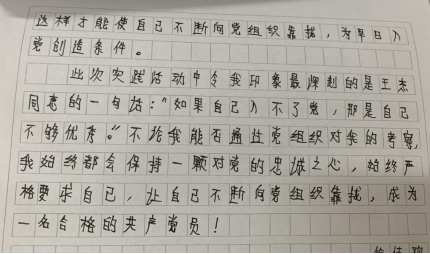 这样才能使自己不断向党组织靠拢，为早日入
党创造条件。
此次实践活动中令我印象最深刻的是王杰
同志的一句话：“如果自己入不了党，那是自己
不够优秀。”不论我能否通过党组织对我的考察，
我始终都会保持一颗对党的忠诚之心，始终严
格要求自己，让自己不断向党组织靠拢，成为
一名合格的共产党员！